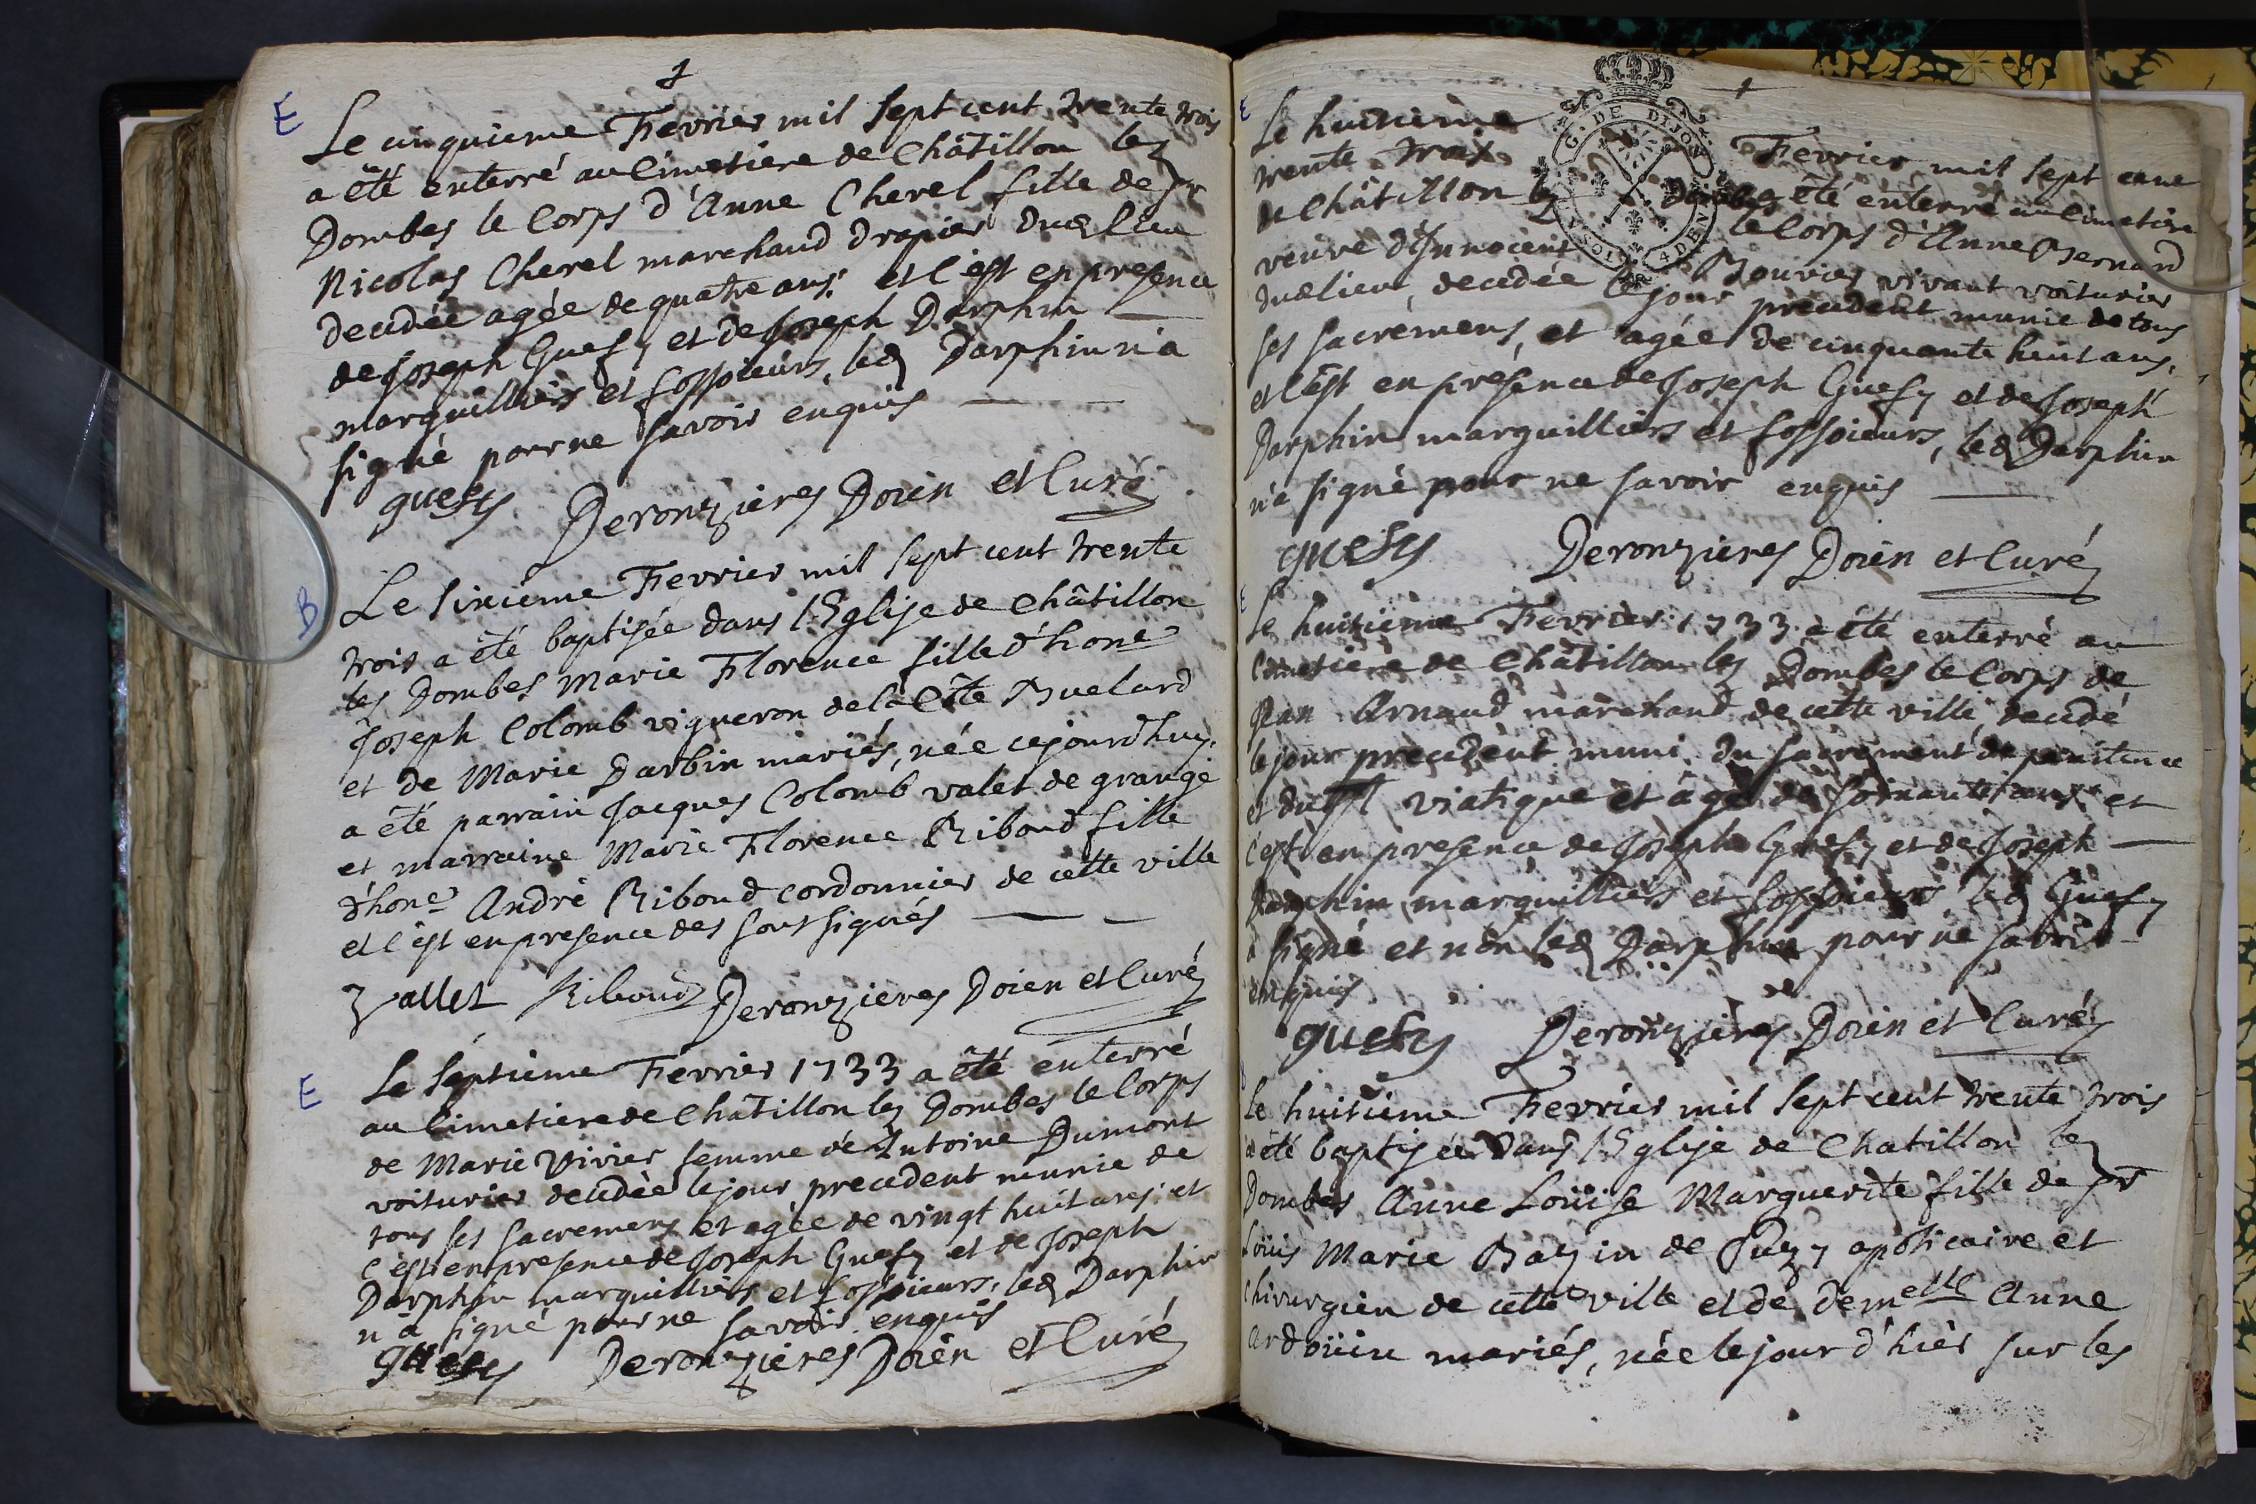 E
Le cinquieme Fevrier mil Sept cent trente trois
a êtê enterré au Cimetiere de Châtillon lez
Dombes le Corps d'Anne Cherel fille de Sr
Nicolas Cherel marchand drapier dud lieu
decedée agée de quatre ans; et c'est en presence
de Joseph Guefy et de Joseph Darphin
marguilliers et fossoieurs, led Darphin n'a
signé pour ne savoir enquis
guefy Deronzieres Doien et Curé
B
Le Sixieme Fevrier mil sept cent trente
trois a été baptisée dans l'Eglise de Châtillon
les Dombes Marie Florence fille d'hone
Joseph Colomb vigneron de la Côte Buelard
et de Marie Darbin mariés, née cejourdhuy,
a été parrain Jacques Colomb valet de grange
et marraine Marie Florence Riboud fille
d'hone André Riboud cordonnier de cette ville
et c'est en presence des soussignés
Vallet Riboud Deronzieres Doien et Curé
E
Le Septieme Fevrier 1733 a êté enterré
au Cimetiere de Châtillon lez Dombes le Corps
de Marie Vivier femme de Antoine Dumont
voiturier decedée le jour precedent munie de
tous ses sacremens et agée de vingt huit ans; et
c'est en presence de Joseph Guefy et de Joseph
Darphin marguilliers et fossoieurs, led Darphin
n'a signé pour ne savoir enquis
guefy Deronzieres Doien et Curé
E
Le huitieme Fevrier mil sept cent
trente trois a été enterré au Cimetiere
de Châtillon lez Dombes le Corps d'Anne Bernard
veuve d'Innocent Bouvier vivant voiturier
dud lieu, decedée le jour precedent munie de tous
ses sacremens, et agée de cinquante huit ans,
et c'est en présence de Joseph Guefy et de Joseph
Darphin marguilliers et fossoieurs, led Darphin
n'a signé pour ne savoir enquis
guefy Deronzieres Doien et Curé
G. DE DIJON
4 DEN
E
Le huitieme Fevrier 1733 a été enterré au
Cimetiere de Châtillon les Dombes le Corps de
Jean Arnaud marchand de cette ville decedé
le jour precedent muni du sacrement de penitence
et du St viatique et agé de soixante ans et
c'est en presence de Joseph Guefy et de Joseph
Darphin marguilliers et fossoieurs led Guefy
a signé et non led Darphin pour ne savoir
enquis
guefy Deronzieres Doien et Curé
Le huitieme Fevrier mil sept cent trente trois
a été baptisée dans l'Eglise de Chatillon lez
Dombes Anne Loüise Marguerite fille de Sr
Loüis Marie Bazin de Puzy apoticaire et
Chirurgien de cette ville et de demelle Anne
Ardoüin mariés, née le jour d'hier sur les